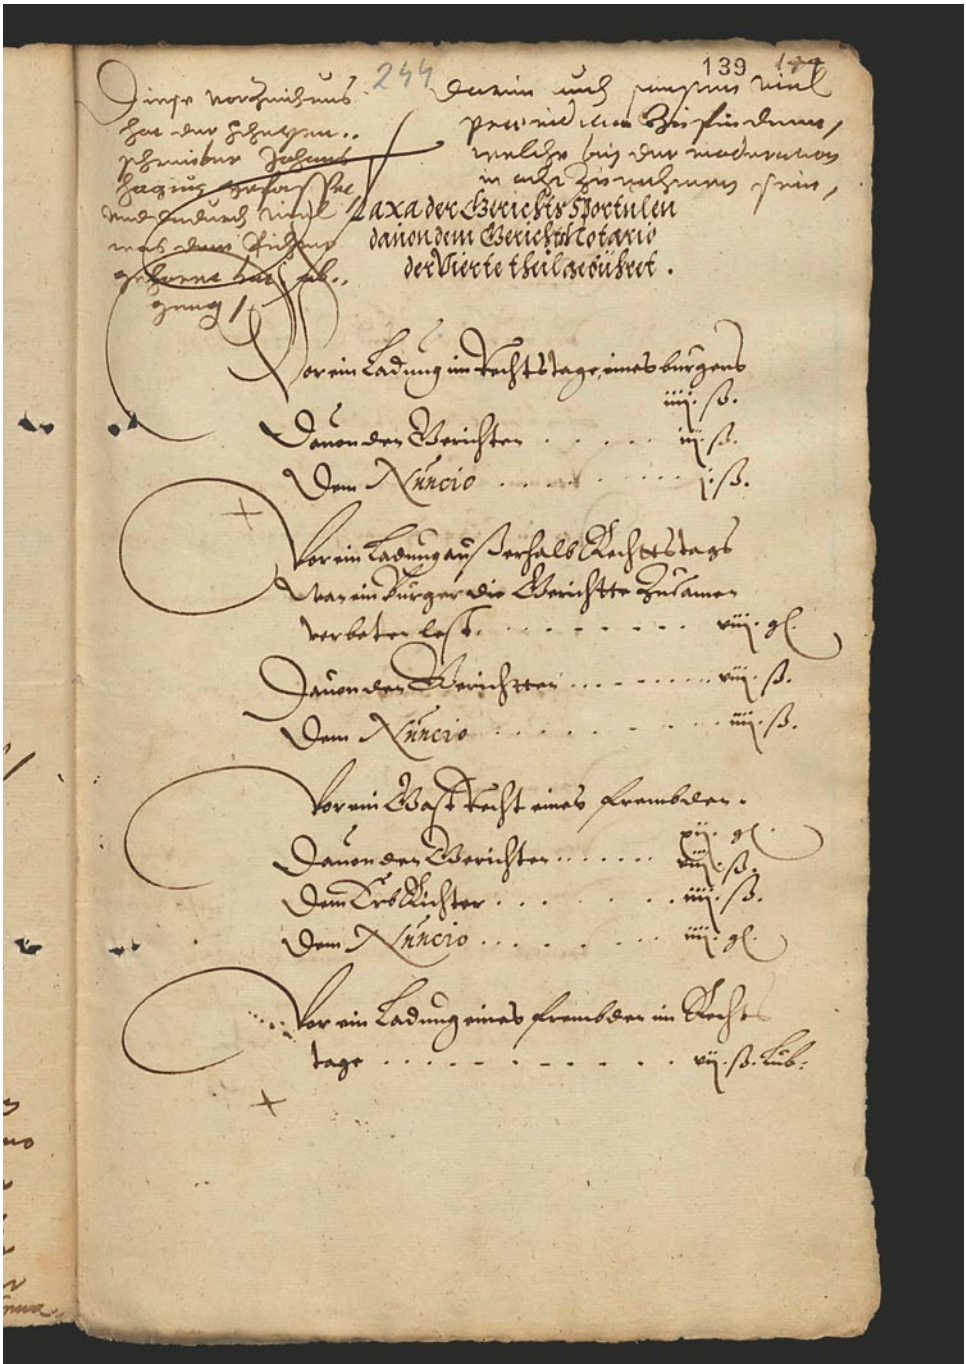 244
139
Diese Vorzeichnus
hat der
schreiber Johans
gefasset
und dadurch viel
was dem Richter
gehoret hat
darin auch sonsten viel
zu finden,
welche bey der moderation
in acht zu nehmen sein,
Taxa der Gerichts Sportulen
dauon dem Gerichts Notario
der Vierte theil gebühret.
Vor ein Ladung im Rechtstage eines burgers
iiij. ß.
Dauon den Gerichten . . . . . iij. ß.
Dem Nuncio . . . . . . . . j. ß.
Vor ein Ladung außerhalb Rechttstags
Wan ein Burger die Gerichtte Zusamen
verbaten lest. . . . . . . . . viij. gl.
Dauon den Gerichtten . . . . . . . . viij. ß.
Dem Nuncio . . . . . . . iiij. ß.
Vor ein Gast Recht eines frembden.
xij. gl.
Dauon den Gerichten . . . . . . viij. ß.
Dem Erb Richter . . . . . . iiij. ß.
Dem Nuncio . . . . . . . iiij. gl.
Vor ein Ladung eines frembden im Rechts
tage . . . . . . . . . . vij. ß. Lub.